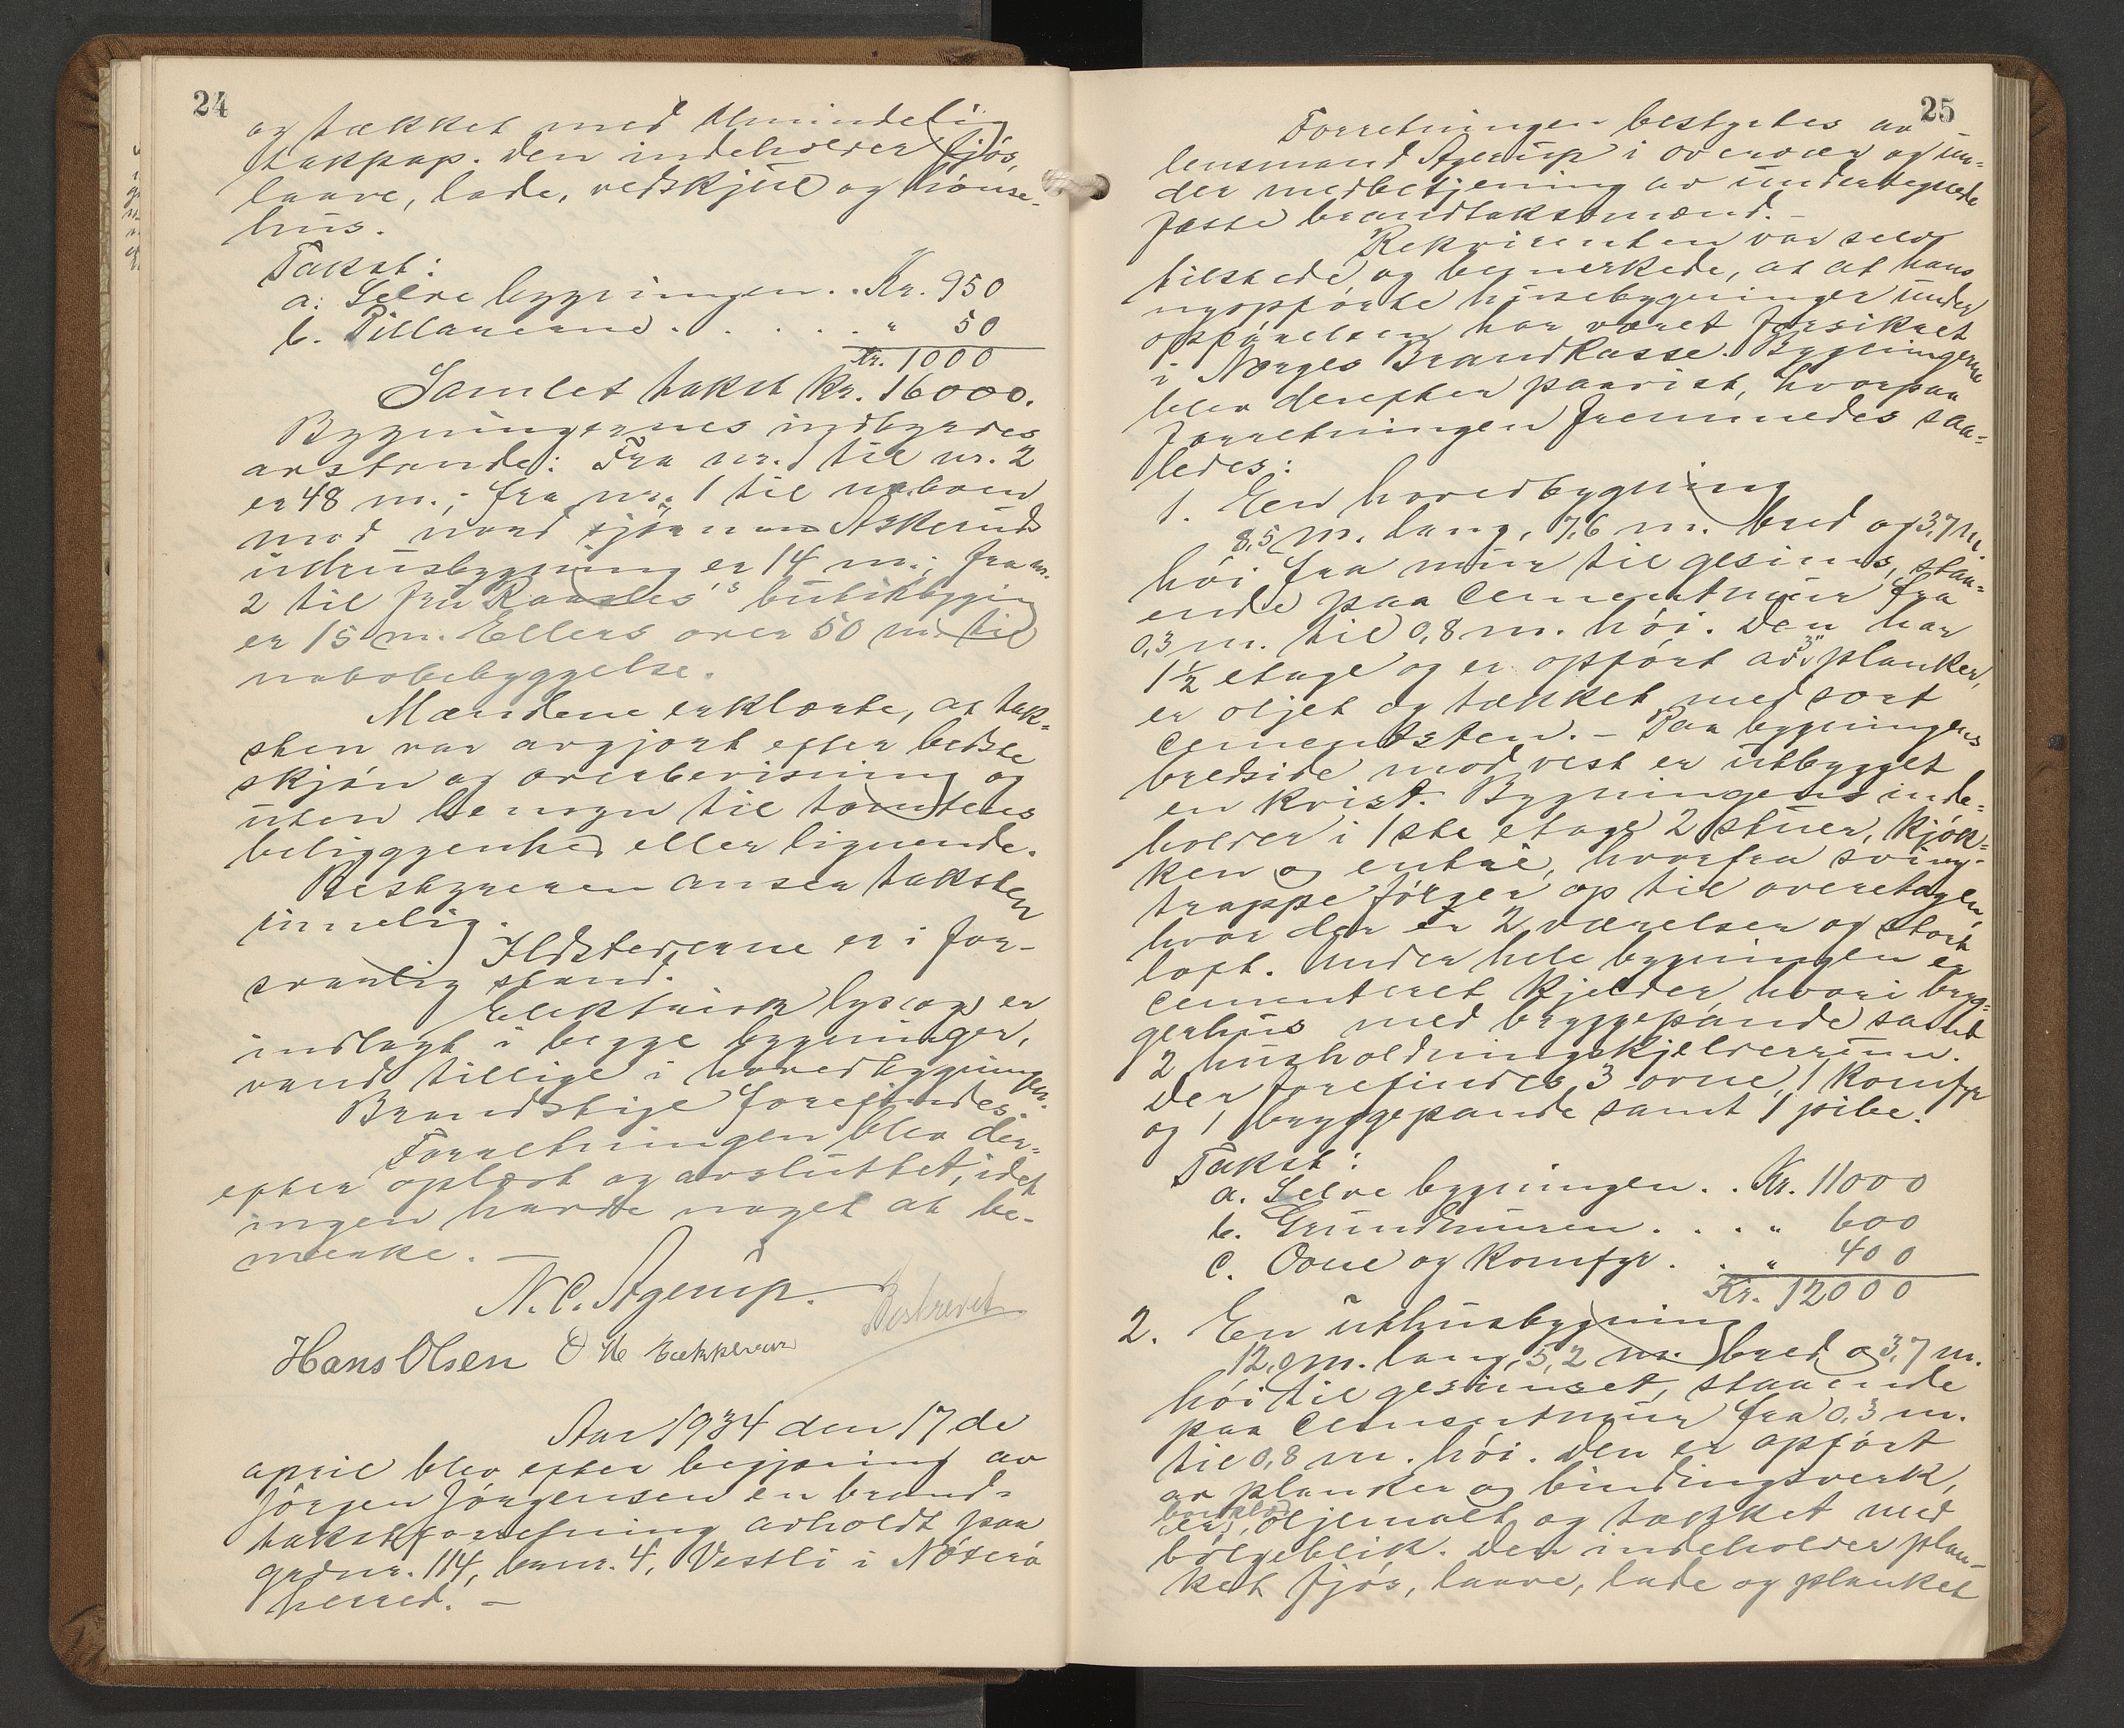 24
og tækket med almindelig
takpap. Den indeholder fjös,
laave, lade, vedskjul og hönse-
hus.
Takst:
a. Selve bygningen . . Kr. 950
b. Pillarerne . . . . . " 50
Kr. 1000
Samlet takst kr. 16000.
Bygningernes indbyrdes
avstande: Fra nr. 1 til nr. 2
er 48 m.; fra nr. 1 til naboen
mod nord Askeruds
uthusbygning er 14 m.; fra nr.
2 til fru
er 15 m. Ellers over 50 m. til
nabobebyggelse.
Mændene erklærte, at tak-
sten var avgjort efter bedste
skjön og overbevisning og
uten hensyn til tomtens
beliggenhed eller lignende.
Bestyreren anser taksten
rimelig.
Ildstederne er i for-
svarlig stand.
Elektrisk lys er
indlagt i begge bygninger,
vand tillige i hovedbygningen.
Brandstige forefindes.
Forretningen blev der-
efter oplæst og avsluttet, idet
ingen havde noget at be-
merke. —
N. C. Agerup.
Beskrevet
Hans Olsen O M Bakkevar
Aar 1934 den 17 de
april blev efter begjæring av
Jörgen Jörgensen en brand-
takstforretning avholdt paa
gardnr. 114, brnr. 4, Vestli i Nöterö
herred. —
25
Forretningen bestyrtes av
lensmand Agerup i overvær og un-
der medbetjening av undertegnede
faste brandtakstmænd. —
Rekvirenten var selv
tilstede og bemerkede, at at hans
nyopförte husebygninger under
opförelsen har været forsikret
i Norges Brandkasse. Bygningerne
blev derefter paavist, hvorpaa
forretningen fremmedes saa-
ledes:
1. En hovedbygning
8,5 m. lang, 7,6 m. bred og 3,7 m.
höi fra mur til gesims, staa-
ende paa cementmur fra
0,3 m. til 0,8 m. höi. Den har
1½ etage og er opfört av 3" planker,
er oljet og tækket med sort
cementsten. — Paa bygningens
bredside mod vest er utbygget
en kvist. Bygningen inde-
holder i 1ste etage 2 stuer, kjök-
ken og entré, hvorfra sving-
trappe förger op til overetagen,
hvor der er 2 værelser og stort
loft. Under hele bygningen er
cementeret kjelder, hvori bryg-
gerhus med bryggepande samt
2 husholdningskjelderrum.
Der forefindes 3 ovne, 1 komfyr
og 1 bryggepande samt 1 pibe.
Takst:
a. Selve bygningen . . Kr. 11000
b. Grundmuren . . . " 600
c. Ovne og komfyr . . " 400
Kr. 12000
2. En uthusbygning
12,0 m. lang, 5,2 m. bred og 3,7 m.
höi til gesimset, staaende
paa cementmur fra 0,3 m.
til 0,8 m. höi. Den er opfört
av planker og bindingsverk,
bordklædt
er oljemalt og tækket med
bölgeblik. Den indeholder plan-
ket fjös, laave, lade og planket